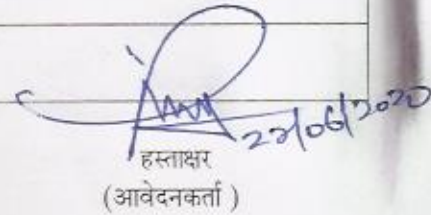 22/06/2020
हस्ताक्षर
(आवेदनकर्ता )